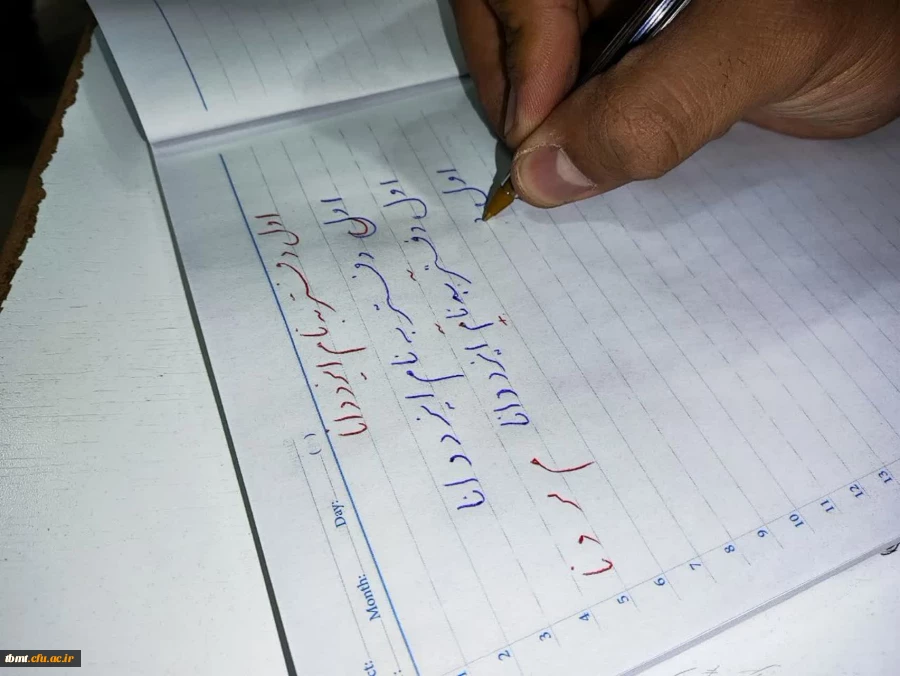 اول دفتر به نام ایزد دانا
اول دفتر به نام ایزد دانا
اول دفتر به نام ایزد دانا
اول د
م ر د نا
Subject:
Month:
Day:
( )
1
2
3
4
5
6
7
8
9
10
11
12
13
tbmt.cfu.ac.ir